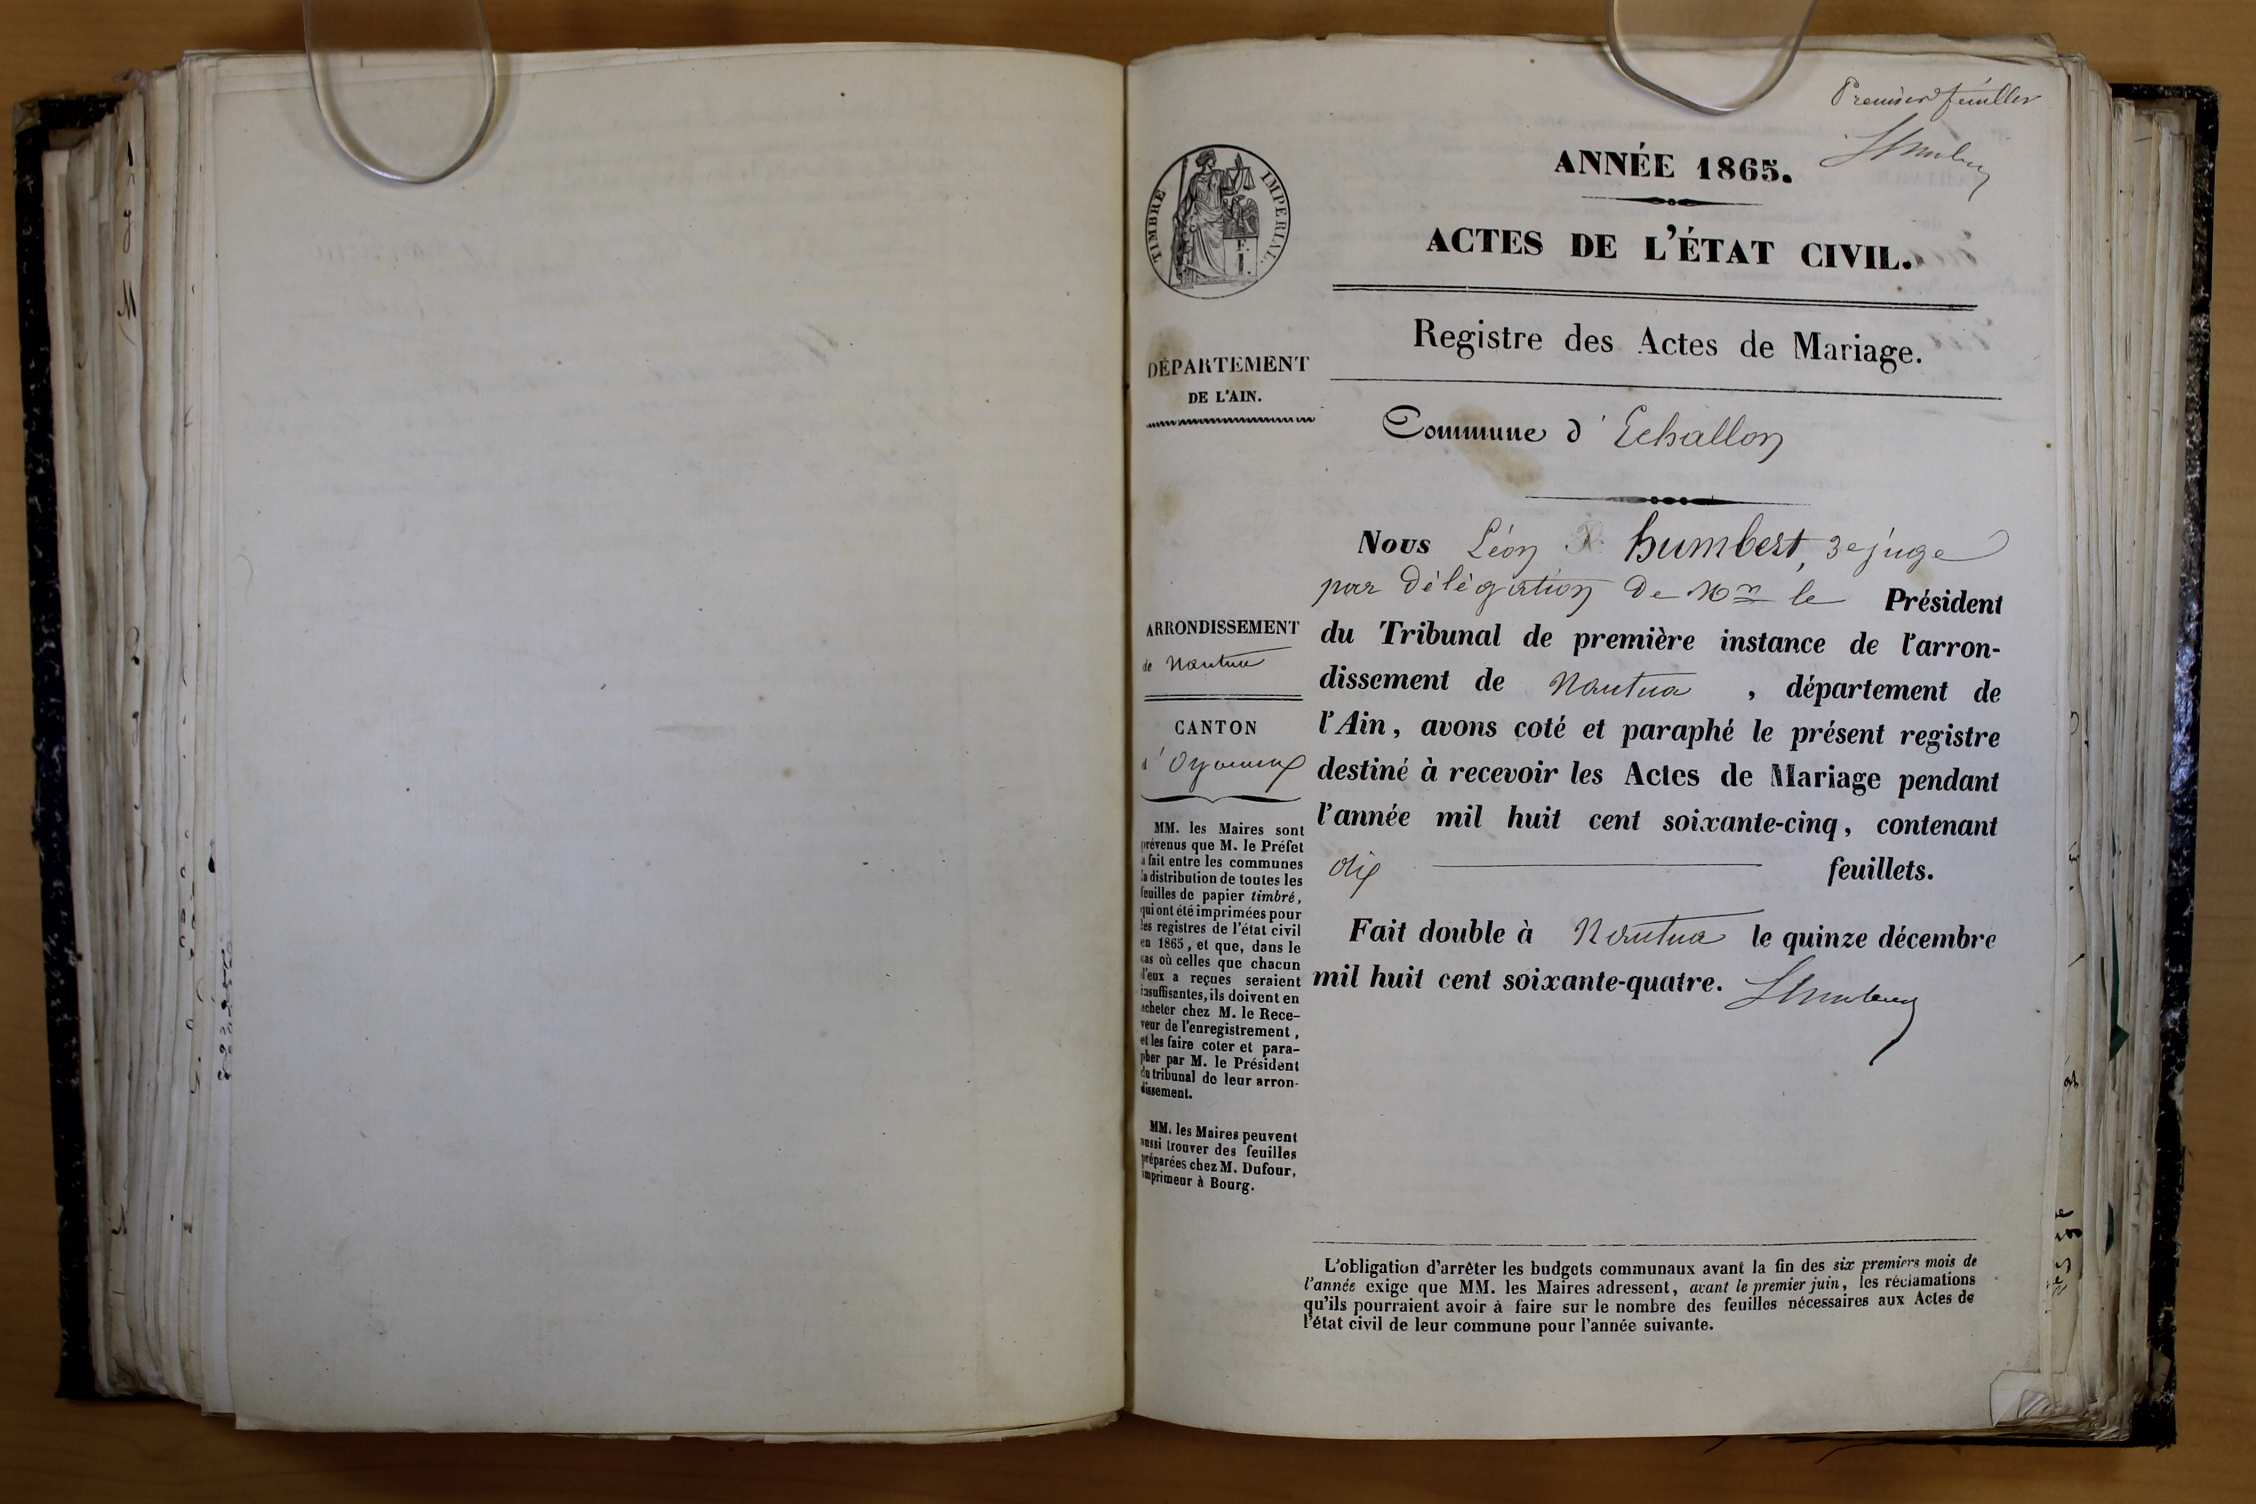 Premier feuillet
ANNÉE 1865.
ACTES DE L'ÉTAT CIVIL.
TIMBRE IMPERIAL.
Registre des Actes de Mariage.
DÉPARTEMENT
DE L'AIN.
Commune d'Echallon
Nous Léon humbert, 3e juge
par délégation de Mr le Président
du Tribunal de première instance de l'arron-
dissement de Nantua, département de
l'Ain, avons coté et paraphé le présent registre
destiné à recevoir les Actes de Mariage pendant
l'année mil huit cent soixante-cinq, contenant
dix feuillets.
Fait double à Nantua le quinze décembre
mil huit cent soixante-quatre.
ARRONDISSEMENT
de Nantua
CANTON
d'Oyonnax
MM. les Maires sont
prévenus que M. le Préfet
a fait entre les communes
la distribution de toutes les
feuilles de papier timbré,
qui ont été imprimées pour
les registres de l'état civil
en 1865, et que, dans le
cas où celles que chacun
d'eux a reçues seraient
insuffisantes, ils doivent en
acheter chez M. le Rece-
veur de l'enregistrement,
et les faire coter et para-
pher par M. le Président
du tribunal de leur arron-
dissement.
MM. les Maires peuvent
aussi trouver des feuilles
préparées chez M. Dufour,
imprimeur à Bourg.
L'obligation d'arrêter les budgets communaux avant la fin des six premiers mois de
l'année exige que MM. les Maires adressent, avant le premier juin, les réclamations
qu'ils pourraient avoir à faire sur le nombre des feuilles nécessaires aux Actes de
l'état civil de leur commune pour l'année suivante.